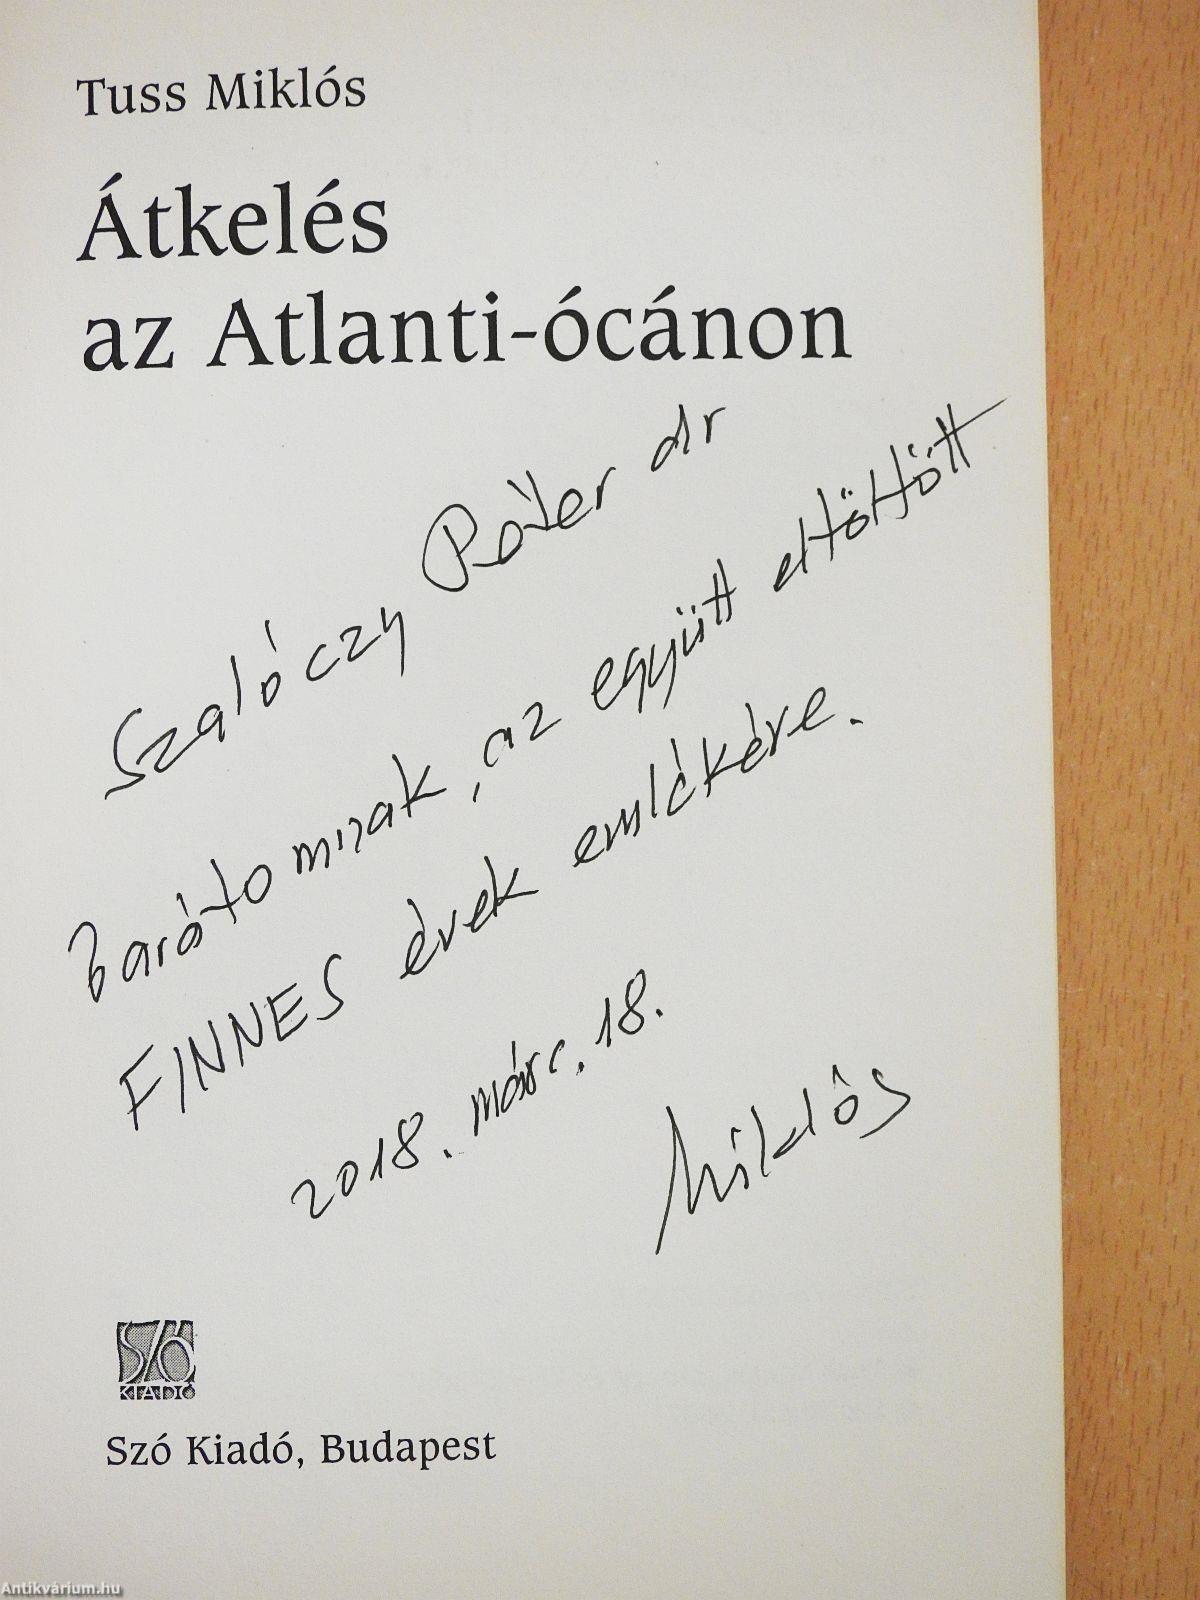 Tuss Miklós
Átkelés
az Atlanti-ócánon
Szalóczy Péter dr
barátomnak, az együtt eltöltött
FINNES évek emlékére.
2018. márc. 18.
Miklós
SZÓ
KIADÓ
Szó Kiadó, Budapest
Antikvárium.hu